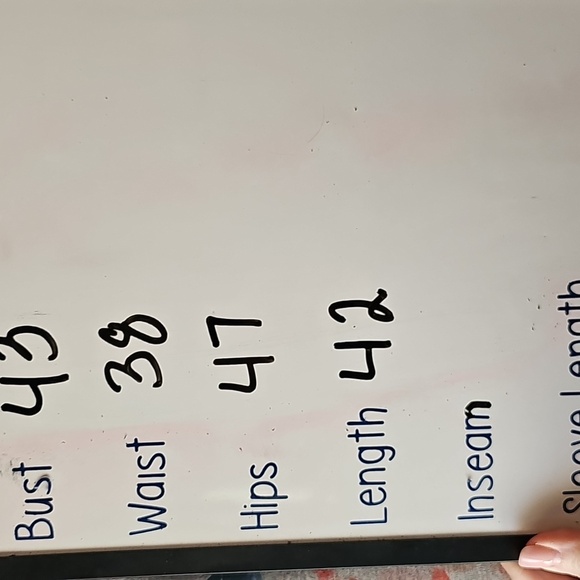 Bust 43
Waist 38
Hips 47
Length 42
Inseam
Sleeve Length